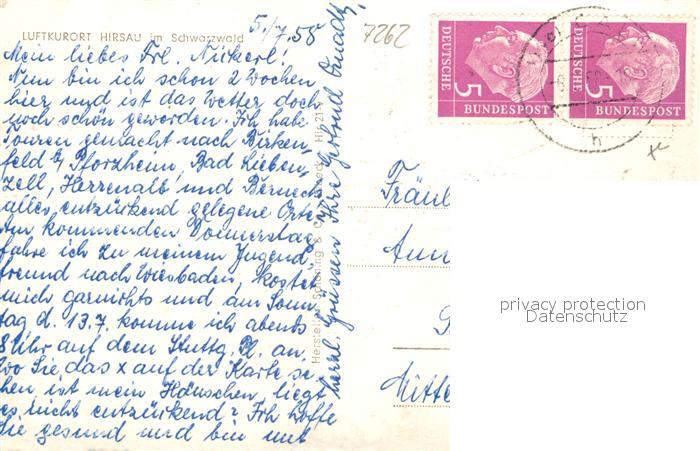 LUFTKURORT HIRSAU im Schwarzwald
5./7.58
7262
Mein liebes Frl. Nickerl!
Nun bin ich schon 2 Wochen
hier und ist das Wetter doch
noch schön geworden. Ich habe
Touren gemacht nach Birken-
feld b/ Pforzheim, Bad Lieben-
zell, Herrenalb und Berneck
alles entzückend gelegene Orte.
Am kommenden Donnerstag
fahre ich zu meinem Jugend-
freund nach Wiesbaden, kostet
mich garnichts und am Sonn-
tag d. 13.7. komme ich abends
8 Uhr auf dem Stuttg. Pl. an.
Wo Sie das x auf der Karte se-
hen ist mein Häuschen, liegt
es nicht entzückend? Ich hoffe
Sie gesund und bin mit
herzl. Grüssen Ihre
Hersteller Schöning & Co
DEUTSCHE
BUNDESPOST
5
DEUTSCHE
BUNDESPOST
5
h
Fräul
Ann
Mitte
privacy protection
Datenschutz